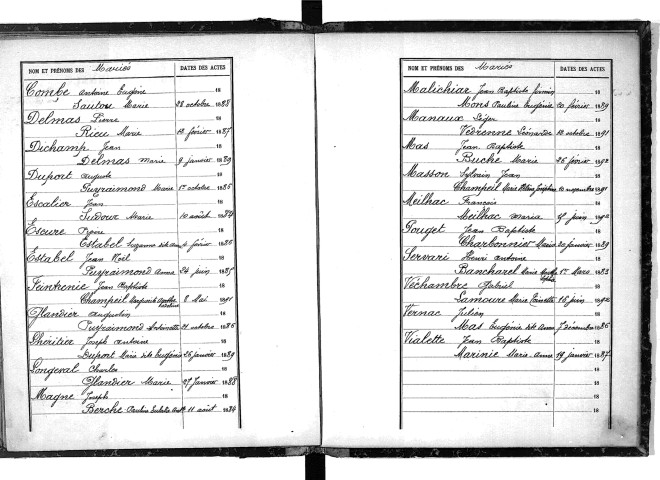 NOM ET PRÉNOMS DES Mariés DATES DES ACTES
Combe Antoine Eugène 18
Saulou Marie 28 octobre 1888
Delmas Pierre 18
Rieu Marie 12 février 1885
Dichamp Jean 18
Delmas Marie 9 janvier 1889
Duport Auguste 18
Puyraimond Marie 1er octobre 1885
Escalier Jean 18
Sudour Marie 10 août 1884
Escure Pierre 18
Estabel Suzanne dite Anna 4 février 1886
Estabel Jean Noël 18
Puyraimond Anna 24 juin 1885
Jean Baptiste 18
Champeil 8 Mai 1891
Glandier Augustin 18
Puyraimond Antoinette 21 octobre 1886
Lhéritier Joseph Antoine 18
Duport Marie dite Eugénie 26 janvier 1889
Longeval Charles 18
Glandier Marie 27 Janvier 1888
Magne Joseph 18
Berche Pauline 11 août 1884
NOM ET PRÉNOMS DES Mariés DATES DES ACTES
Malichiar Jean Baptiste Firmin 18
Mons Pauline Eugénie 20 février 1889
Manaux Léger 18
Védrenne Léonarde 10 octobre 1891
Mas Jean Baptiste 18
Buche Marie 26 février 1892
Masson Sylvain Jean 18
Champeil Marie Joséphine 10 novembre 1891
Meilhac François 18
Meilhac Maria 15 juin 1892
Pouget Jean Baptiste 18
Charbonnier Maria 20 janvier 1889
Servari Henri Antoine 18
Bancharel Marie 1er Mars 1883
Véchambre Gabriel 18
Lamoure Marie Toinette 16 juin 1892
Vernac Julien 18
Mas Eugénie dite Anna 7 décembre 1886
Vialette Jean Baptiste 18
Marinie Marie Anna 19 janvier 1887
18
18
18